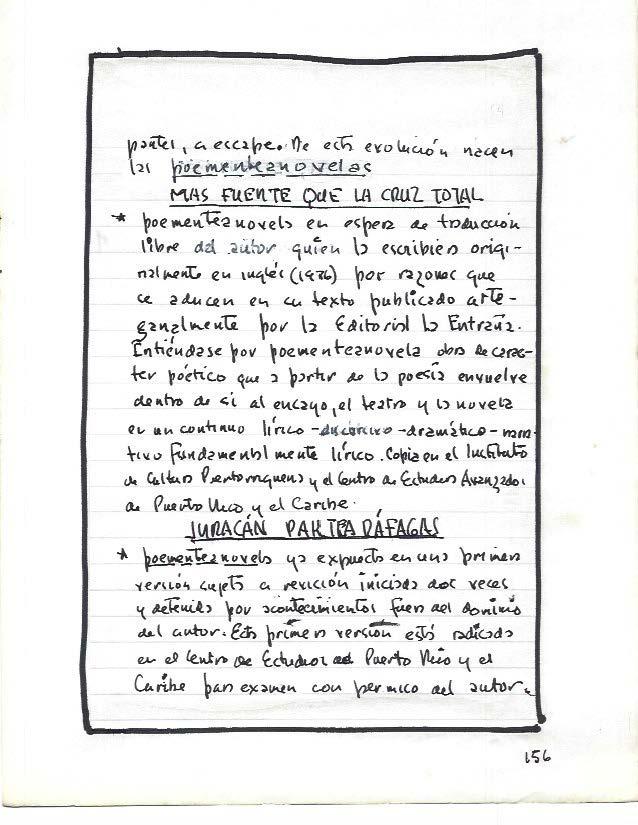 partes, a escape. De esta evolución nacen
las poementeanovelas
MAS FUENTE QUE LA CRUZ TOTAL
* poementeanovela en espera de traducción
libre del autor quien la escribiera origi-
nalmente en inglés (1976) por razones que
se aducen en su texto publicado arte-
sanalmente por la Editorial La Entraña.
Entiéndase por poementeanovela obra de carac-
ter poético que a partir de la poesía envuelve
dentro de sí al ensayo, el teatro y la novela
en un continuo lírico - - dramático - narra-
tivo fundamentalmente lírico. Copia en el Instituto
de Cultura Puertorriqueña y el Centro de Estudios Avanzados
de Puerto Rico y el Caribe.
JURACÁN PARTEA RÁFAGAS
* poementeanovela ya expuesta en una primera
versión sujeta a revisión iniciada dos veces
y detenida por acontecimientos fuera del dominio
del autor. Esta primera versión está radicada
en el Centro de Estudios de Puerto Rico y el
Caribe para examen con permiso del autor.
156